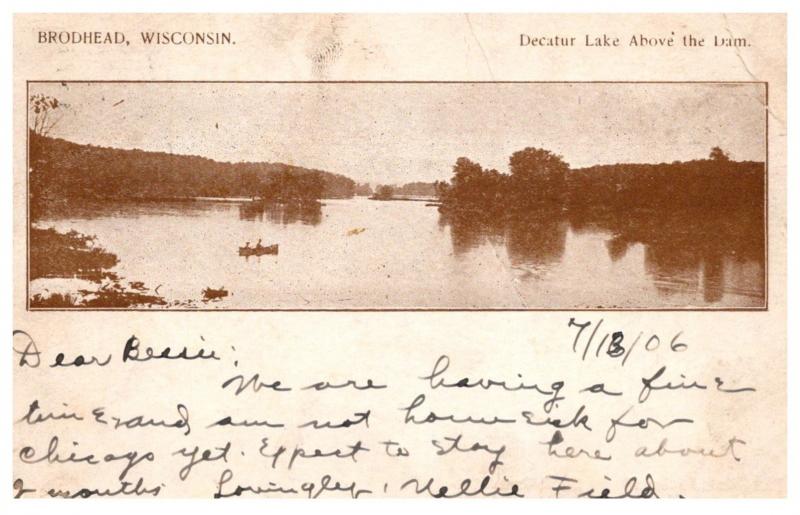 BRODHEAD, WISCONSIN.
Decatur Lake Above the Dam.
7/13/06
Dear Bessie:
We are having a fine
time and am not homesick for
chicago yet. Expect to stay here about
2 months. Lovingley, Nellie Field.